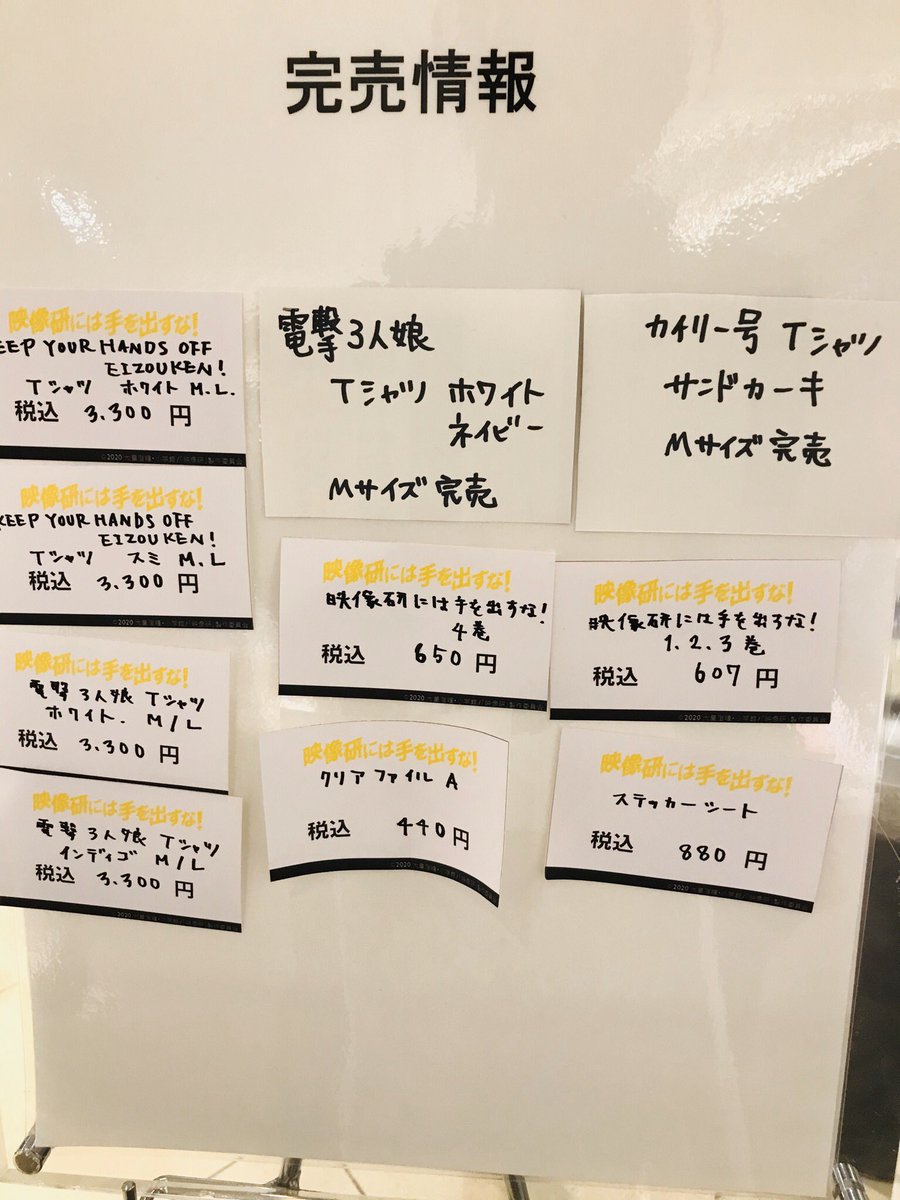 完売情報
映像研には手を出すな!
EEP YOUR HANDS OFF
EIZOUKEN!
Tシャツ ホワイト M.L.
税込 3.300 円
映像研には手を出すな!
KEEP YOUR HANDS OFF
EIZOUKEN!
Tシャツ スミ M.L
税込 3.300 円
映像研には手を出すな!
電撃3人娘 Tシャツ
ホワイト. M/L
税込 3.300 円
映像研には手を出すな!
電撃3人娘 Tシャツ
インディゴ M/L
税込 3.300 円
電撃3人娘
Tシャツ ホワイト
ネイビー
Mサイズ 完売
映像研には手を出すな!
映像研には手を出すな!
4巻
税込 650 円
映像研には手を出すな!
クリアファイル A
税込 440 円
カイリー号 Tシャツ
サンドカーキ
Mサイズ 完売
映像研には手を出すな!
映像研には手を出するな!
1.2.3巻
税込 607 円
映像研には手を出すな!
ステッカーシート
税込 880 円